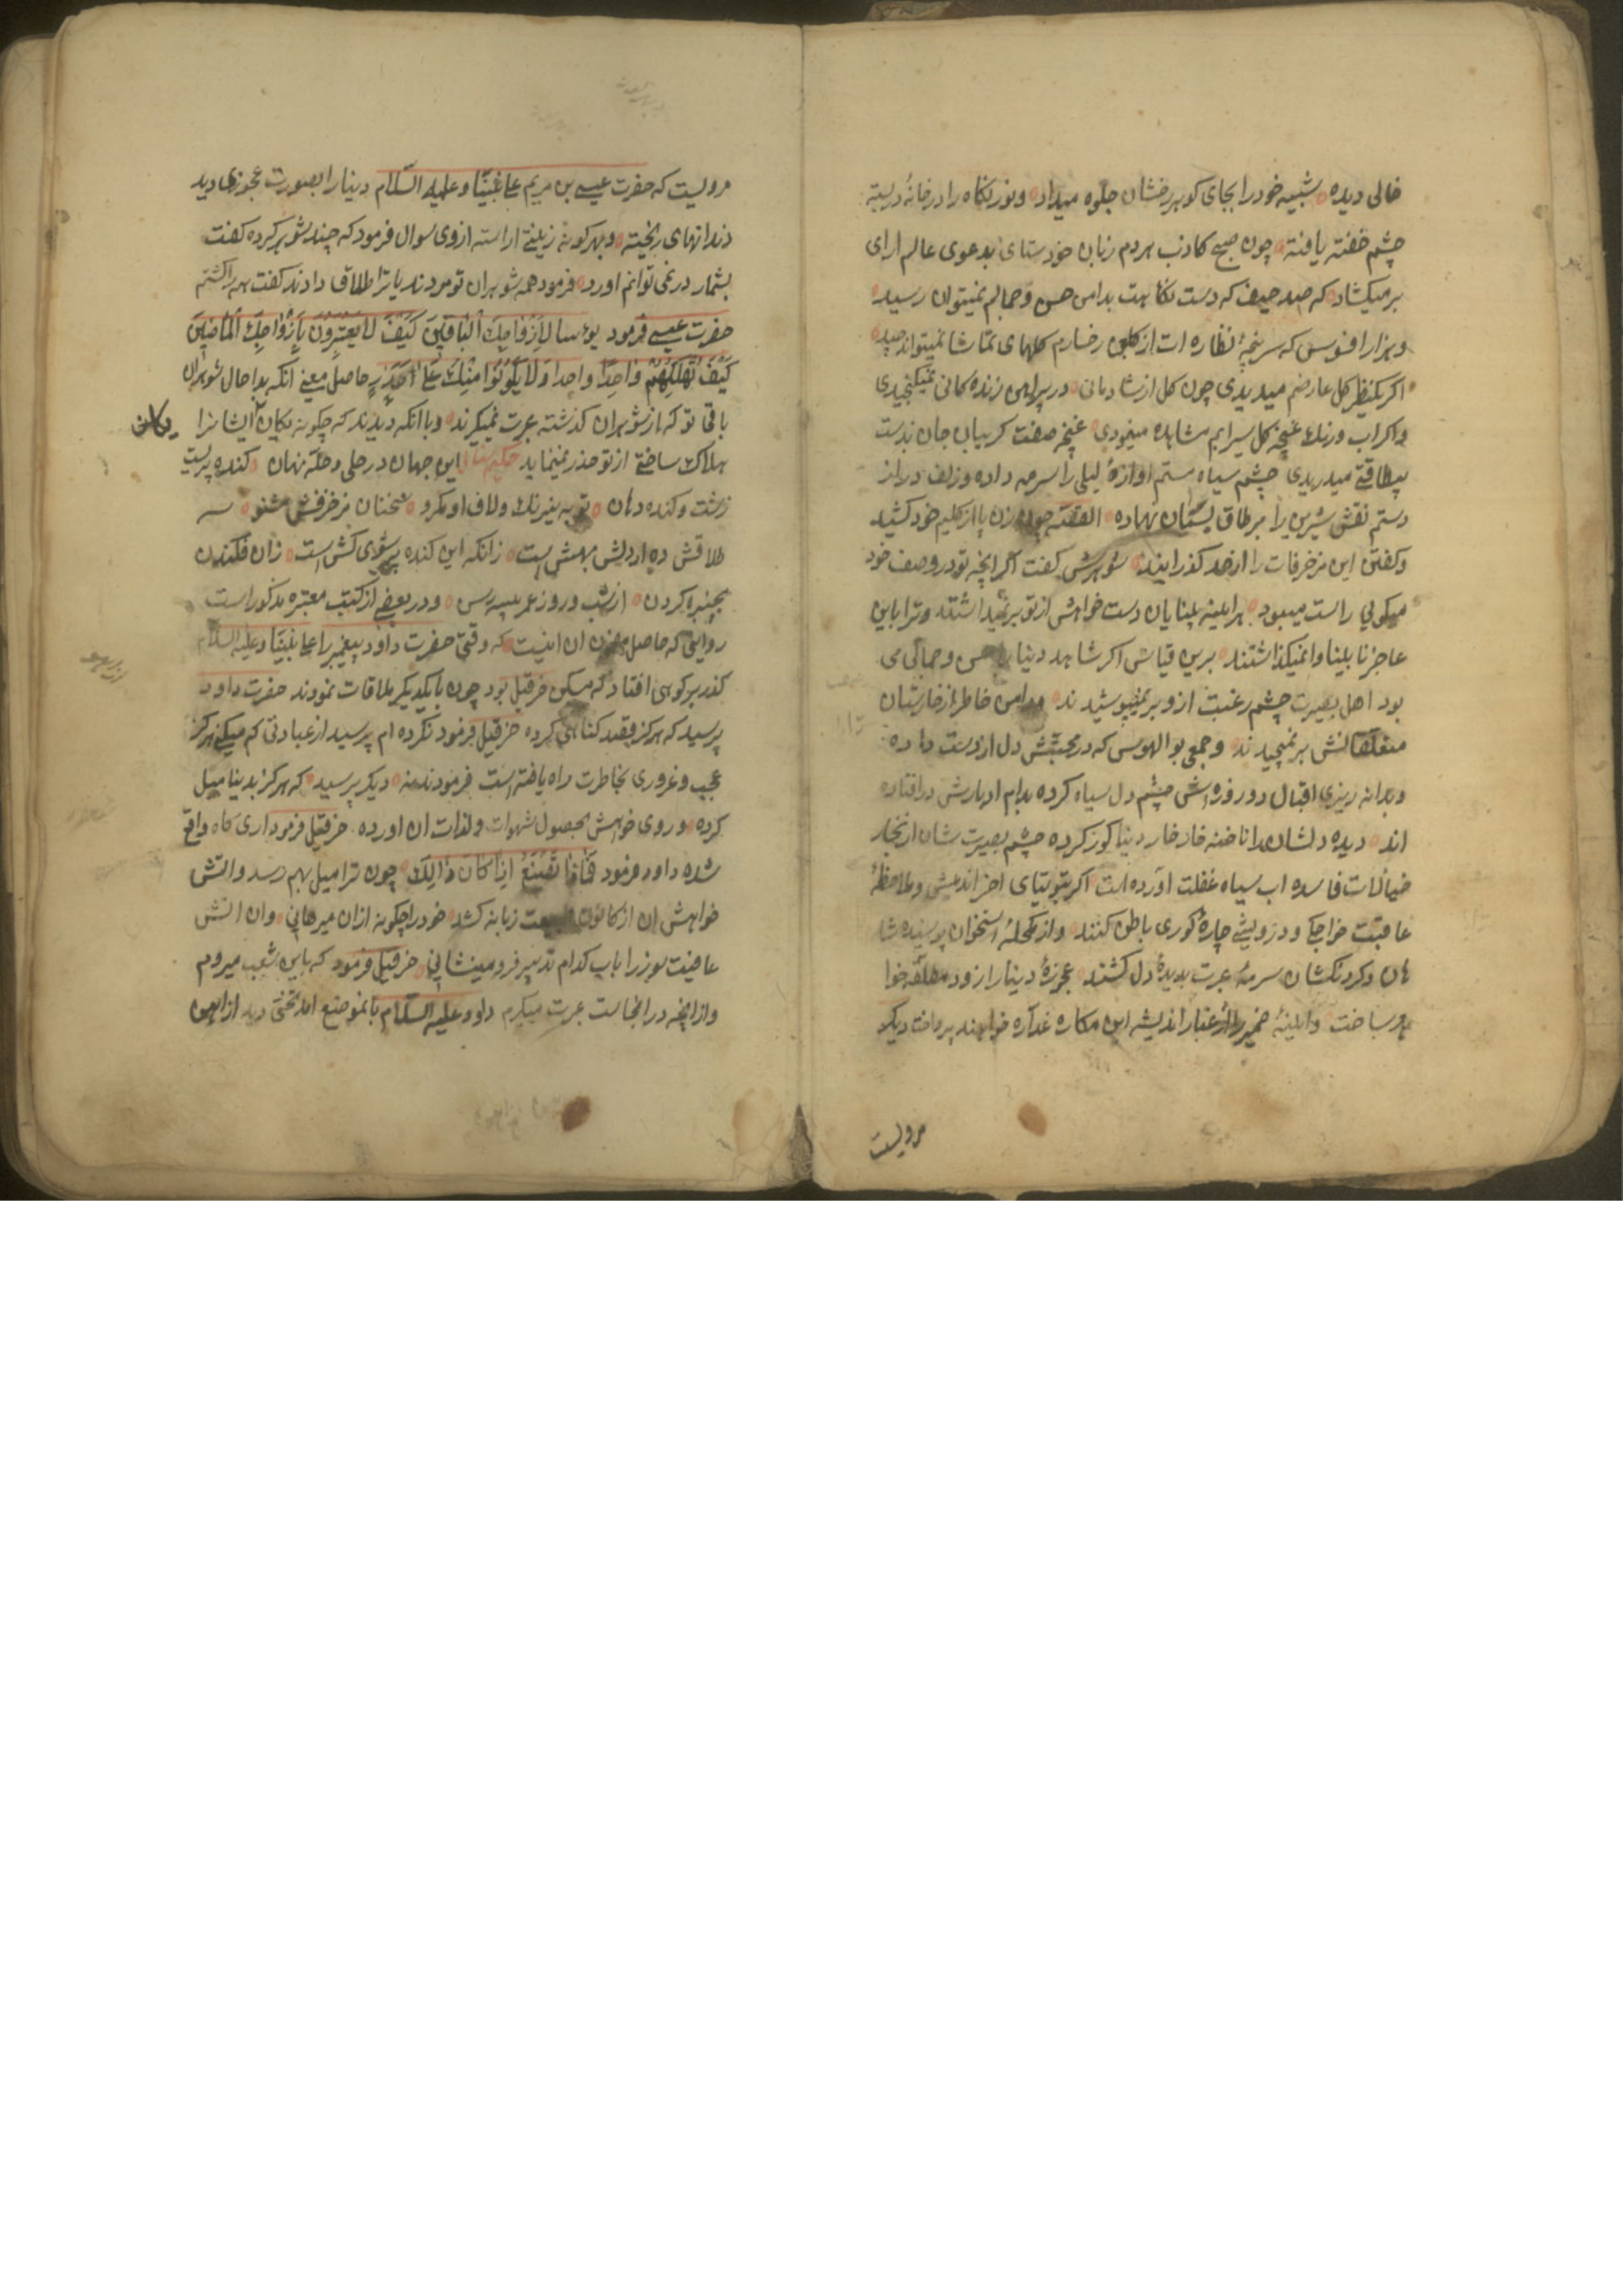 خالی دیده شبیه خود را بجای کوهر رخشان جلوه میداد و نور نکاه را در خانهٔ دربسته
چشم خفته یافته چون صبح کاذب هردم زبان خودستای بدعوی عالم ارای
برمیکشاد که صد حیف که دست نکاهت بدامن حسن و جمالم نمیتوان رسید
و هزار افسوس که سرپنجهٔ نظاره ات از کلبن رخسارم کلهای تماشا نمیتواند چید
اکر یکنظر کل عارضم میدیدی چون کل از شادمانی در پیراهن زنده کانی نمیکنجیدی
و اکر اب و رنک غنچه کل سیرابم مشاهده مینمودی غنچه صفت کریبان جان بدست
بیطاقتی میدریدی چشم سیاه مستم اوازهٔ لیلی را سرمه داده و زلف دراز
دستم نقش شیرین را بر طاق نسیان نهاده القصه چون زن پا از کلیم خود کشید
و کفتن این مزخرفات را از حد کذرانید شوهرش کفت اکر انچه تو در وصف خود
میکویی راست میبود هراینه بینایان دست خواهش از تو برنمیداشتند و ترا باین
عاجز نابینا وانمیکذاشتند برین قیاس اکر شاهد دنیا را حسن و جمالی می
بود اهل بصیرت چشم رغبت ازو برنمیپوشیدند و دامن خاطر از خارستان
متعلقاتش برنمیچیدند و جمعی بوالهوس که در محبتش دل از دست داده
و بدانه ریزی اقبال دو روزه اش چشم دل سیاه کرده بدام ادبارش درافتاده
اند دیده دلشان را ناخنه خار خار دنیا کور کرده چشم بصیرت شان از بخار
خیالات فاسده اب سیاه غفلت اورده است اکر بتوتیای اخر اندیشی و ملاحظهٔ
عاقبت خواجکی و درویشی چارهٔ کوری باطن کنند و از مکحلهٔ استخوان پوسیده شا
هان و کردنکشان سرمهٔ عبرت بدیدهٔ دل کشند عجوزهٔ دنیا را زود مطلقه خوا
هند ساخت و اینهٔ ضمیر را از غبار اندیشه این مکاره غداره خواهند پرداخت دیکر
مرویست
مرویست که حضرت عیسی بن مریم علی نبینا و علیه السلام دنیا را بصورت عجوزی دید
دندانهای ریخته و بهرکونه زینتی اراسته از وی سوال فرمود که چند شوهر کرده کفت
بشمار در نمی توانم اورد فرمود همه شوهران تو مردند یا ترا طلاق دادند کفت همه را کشتم
حضرت عیسی فرمود بؤسا لِاَزْوَاجِكَ الْبَاقِينَ كَيْفَ لَا يَعْتَبِرُونَ بِاَزْوَاجِكَ الْمَاضِينَ
كَيْفَ تُهْلِكِينَهُمْ وَاحِدًا وَاحِدًا وَلَا يَكُونُوا مِنْكَ عَلَى حَذَرٍ حاصل معنی انکه بدا حال شوهران
باقی تو که از شوهران کذشته عبرت نمیکرند و با انکه دیدند که چکونه یکان ایشانرا یکان
هلاک ساختی از تو حذر نمینماید حکیم سنایی این جهان در حلی و حله نهان کنده پیریست
زشت و کنده دهان تو به نیرنک و لاف او مکرو سخنان مزخرفش مشنو سه
طلاقش ده ار دلش بهش است زانکه این کنده پیر شوی کش است زان فکندن
بچنبره کردن از شب و روز عمر پیسه رسن و در بعضی از کتب معتبره مذکور است
روایتی که حاصل مضمون ان اینست که وقتی حضرت داود پیغمبر را علی نبینا و علیه السلام
کذر بر کوهی افتاد که مسکن حزقیل بود چون با یکدیکر ملاقات نمودند حضرت داود
پرسید که هرکز بقصد کناهی کرده حزقیل فرمود نکرده ام پرسید از عبادتی که میکنی هرکز
عجب و غروری بخاطرت راه یافته است فرمودند نه دیکر پرسید که هرکز بدنیا میل
کرده و روی خواهش بحصول شهوات و لذات ان اورده حزقیل فرمود اری کاه واقع
شده داود فرمود فَمَاذَا تَصْنَعُ اِذَا كَانَ ذَالِكَ چون ترا میل بهم رسد و اتش
خواهش ان از کانون طبیعت زبانه کشد خود را چکونه از ان میرهانی و ان اتش
عافیت سوز را باب کدام تدبیر فرو مینشانی حزقیل فرمود که باین شعب میروم
و از انچه در انجاست عبرت میکیرم داود علیه السلام بانموضع امد تختی دید از اهن